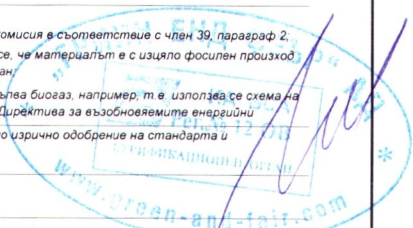 омисия в съответствие с член 39, параграф 2,
се, че материалът е с изцяло фосилен произход
ан;
ълва биогаз, например, т.е. използва се схема на
Директива за възобновяемите енергийни
о изрично одобрение на стандарта и
www.green-and-fair.com